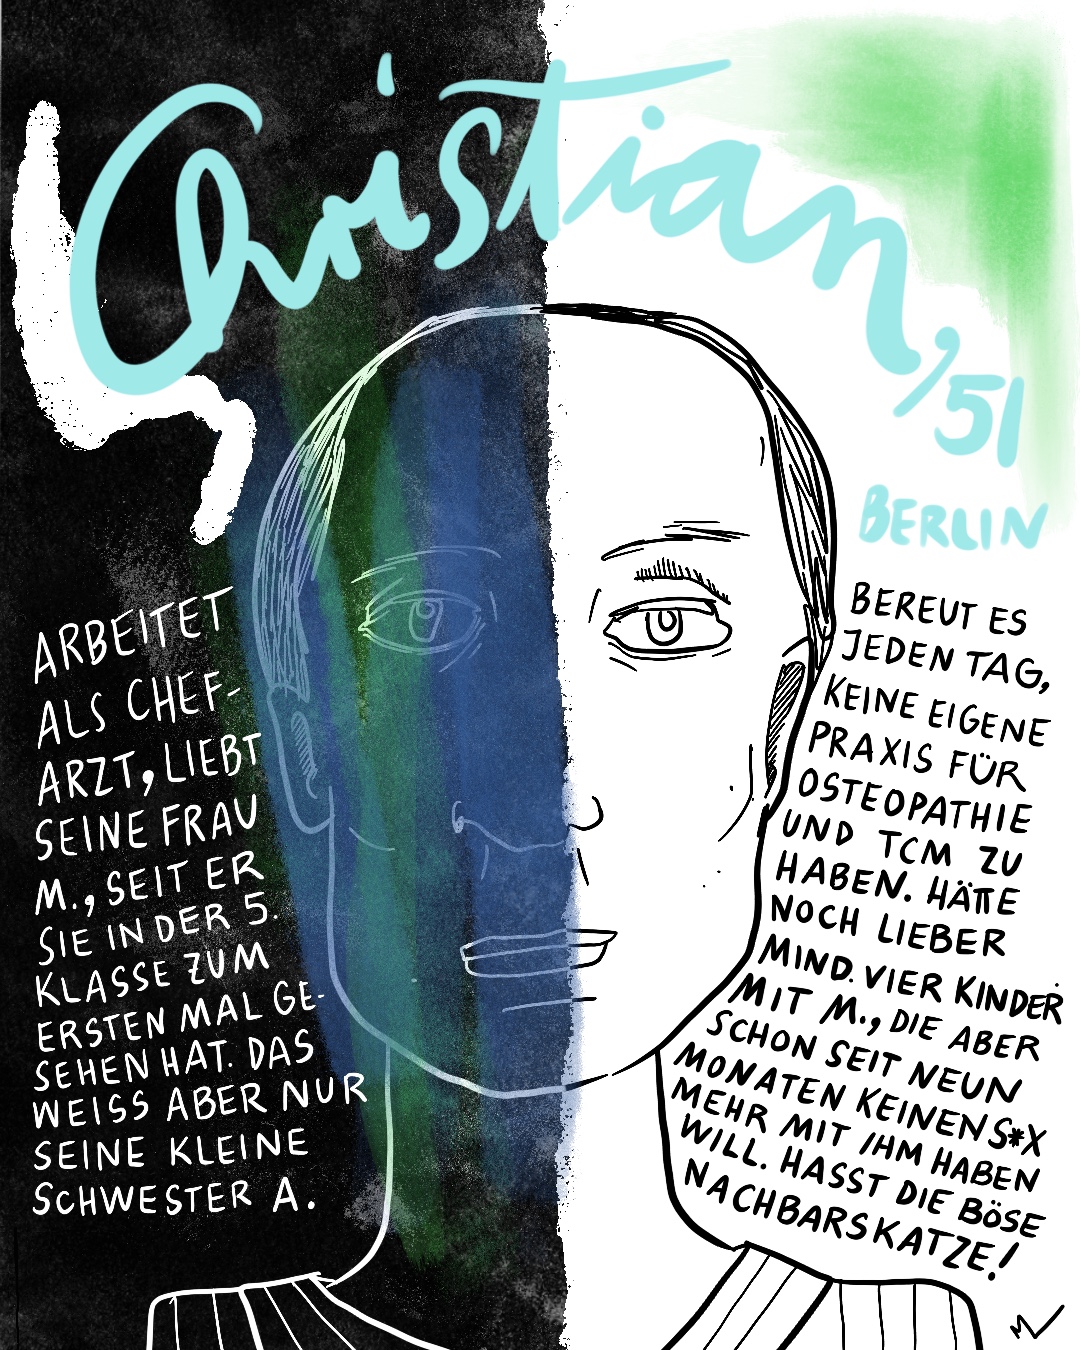 Christian, 51
BERLIN
ARBEITET
ALS CHEF-
ARZT, LIEBT
SEINE FRAU
M., SEIT ER
SIE IN DER 5.
KLASSE ZUM
ERSTEN MAL GE-
SEHEN HAT. DAS
WEISS ABER NUR
SEINE KLEINE
SCHWESTER A.
BEREUT ES
JEDEN TAG,
KEINE EIGENE
PRAXIS FÜR
OSTEOPATHIE
UND TCM ZU
HABEN. HÄTTE
NOCH LIEBER
MIND. VIER KINDER
MIT M., DIE ABER
SCHON SEIT NEUN
MONATEN KEINEN S*X
MEHR MIT IHM HABEN
WILL. HASST DIE BÖSE
NACHBARSKATZE!